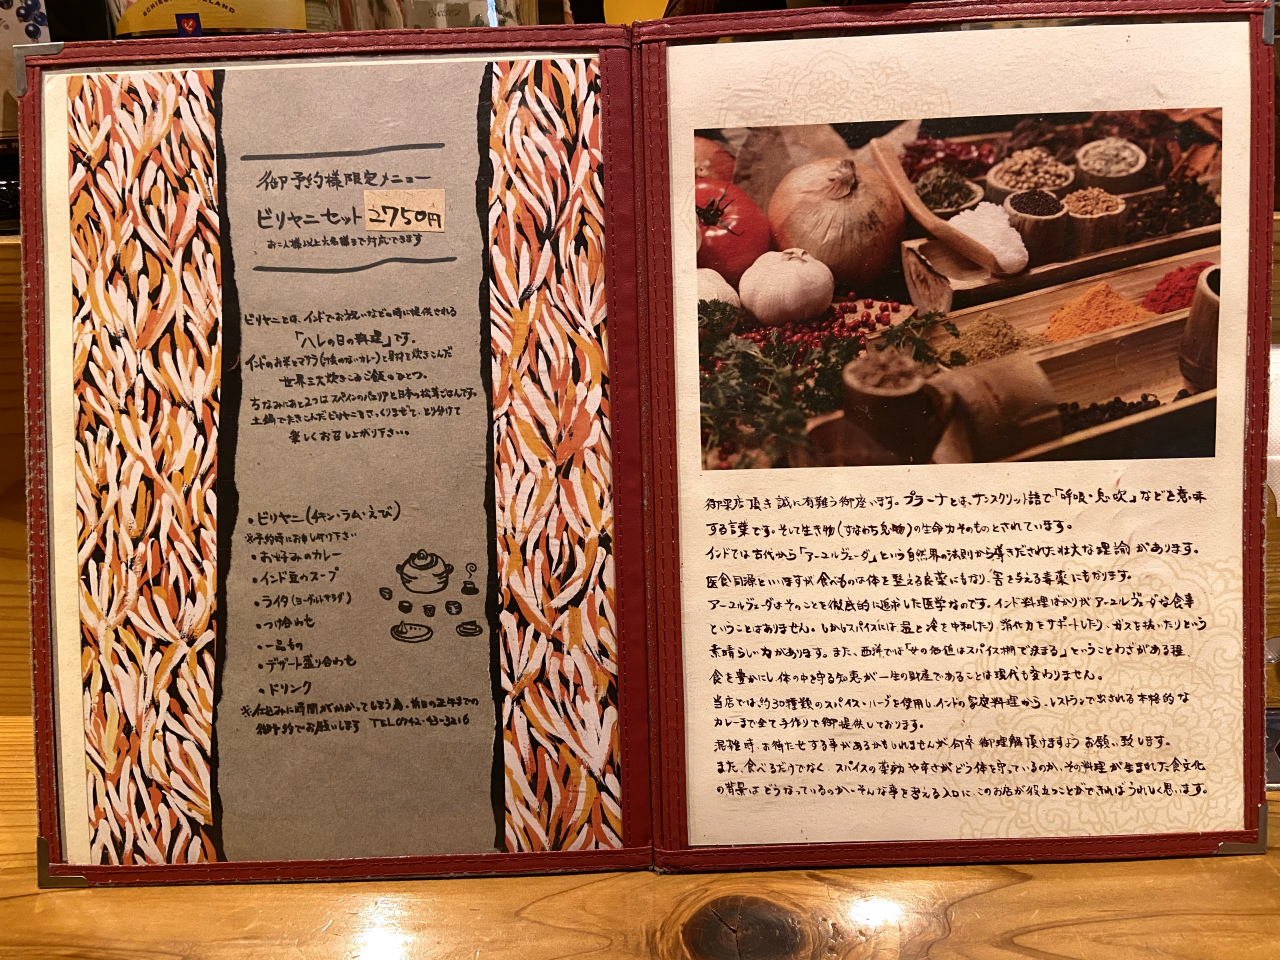 御予約様限定メニュー
ビリヤニセット 2750円
お二人様以上六名様まで対応できます
ビリヤニとは、インドでお祝いなどの時に提供される
「ハレの日の料理」です。
インドのお米とマサラ(汁気のないカレー)と具材を炊きこんだ
世界三大炊きこみご飯のひとつ。
ちなみにあと2つはスペインのパエリアと日本の松茸ごはんです。
土鍋でたきこんだビリヤニをさっくりまぜて、とり分けて
楽しくお召し上がり下さい。
・ビリヤニ(チキン・ラム・えび)
※予約時にお申し付け下さい
・お好みのカレー
・インド豆のスープ
・ライタ(ヨーグルトサラダ)
・つけ合わせ
・一品もの
・デザート盛り合わせ
・ドリンク
※仕込みに時間がかかってしまう為、前日の正午までの
御予約でお願いします TEL0742-93-3216
御来店頂き誠に有難う御座います。プラーナとは、サンスクリット語で「呼吸・息吹」などを意味
する言葉です。そして生き物(すなわち息物)の生命力そのものとされています。
インドでは古代から「アーユルヴェーダ」という自然界の法則から導きだされた壮大な理論があります。
医食同源といいますが食べものは体を整える良薬にもなり、害を与える毒薬にもなります。
アーユルヴェーダはそのことを徹底的に追求した医学なのです。インド料理ばかりがアーユルヴェーダな食事
ということはありません。しかしスパイスには温と冷を中和したり、消化力をサポートしたり、ガスを抜いたりという
素晴らしい力があります。また、西洋では「女の価値はスパイス棚で決まる」ということわざがある程、
食を豊かにし体の中を守る知恵が一生の財産であることは現代も変わりません。
当店では、約30種類のスパイス・ハーブを使用し、インドの家庭料理から、レストランで出される本格的な
カレーまで全て手作りで御提供しております。
混雑時、お待たせする事があるかもしれませんが何卒御理解頂けますようお願い致します。
また、食べるだけでなく、スパイスの薬効や辛さがどう体を守っているのか、その料理が生まれた食文化
の背景はどうなっているのか…そんな事を考える入口に、このお店が役立つことができればうれしく思います。